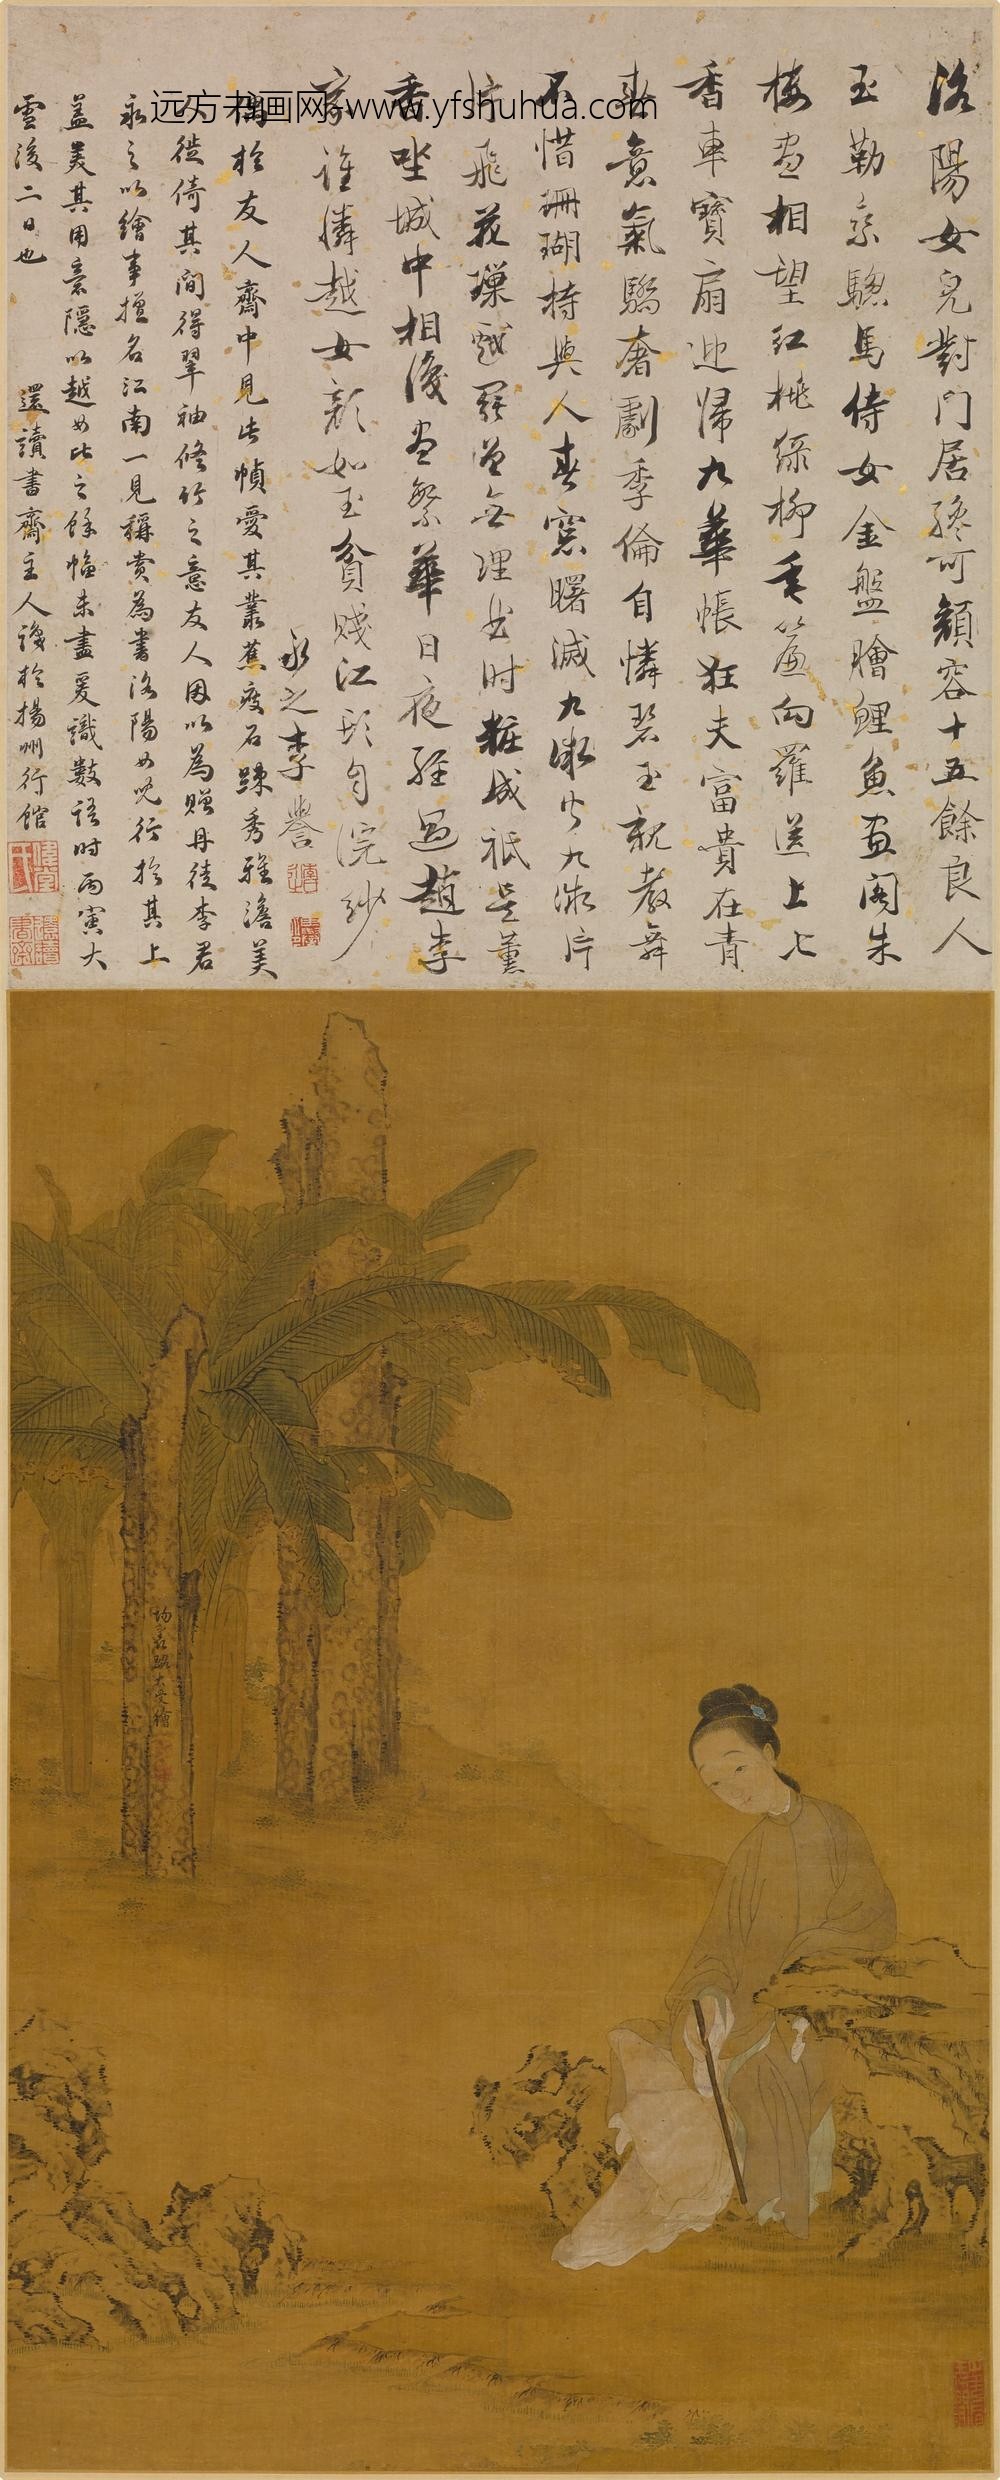 洛陽女兒對門居纔可顏容十五餘良人
玉勒乘驄馬侍女金盤膾鯉魚畫閣朱
樓盡相望紅桃綠柳垂簷向羅帷送上七
香車寶扇迎歸九華帳狂夫富貴在青
春意氣驕奢劇季倫自憐碧玉親教舞
不惜珊瑚持與人春窻曙滅九微火九微片
片飛花璅戲罷曾無理曲時粧成祇是薰
香坐城中相識盡繁華日夜經過趙李
家誰憐越女顏如玉貧賤江頭自浣紗
永之李謩
偶於友人齋中見此幀愛其叢蕉瘦石踈秀雅澹美
人徙倚其間得翠袖修竹之意友人因以為贈丹徒李君
永之以繪事擅名江南一見稱賞為書洛陽女兒行於其上
蓋美其用意隱以越女比之餘幅未盡爰識數語時丙寅大
雪後二日也
還讀書齋主人識於揚州行館
远方书画网-www.yfshuhua.com